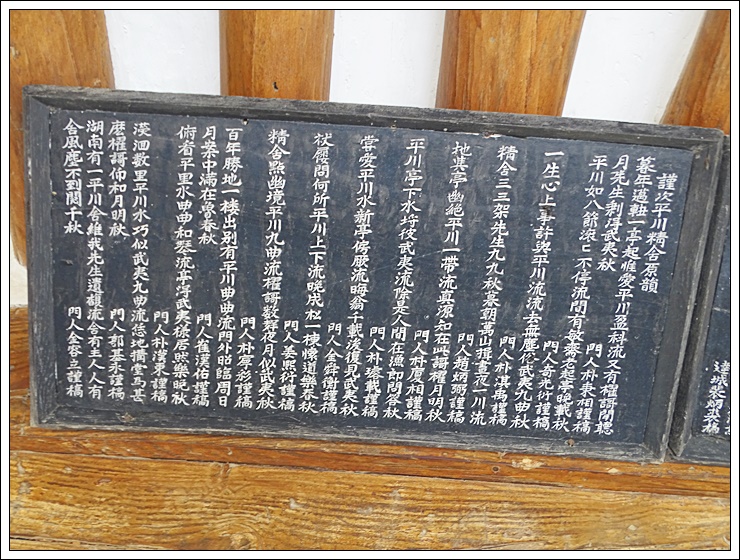 謹次平川精舍原韻
暮年邁軸一亭起惟愛平川盈科流又有櫂謌閒聽
月先生剩得武夷秋
門人朴東相謹稿
平川如八節滾二不停流問有敏
亭晚載秋
門人奇光衍謹稿
一生心上事許與平川流流去無塵
武夷九曲秋
門人朴淇禹謹稿
精舍三三架先生九九秋暮朝萬山揖晝夜一川流
門人趙炳弼謹稿
地其亭幽絕平川一帶流眞源知在此謌櫂月明秋
門人朴度相謹稿
平川亭下水
武夷流
是人間在漁郞問答秋
門人朴
載謹稿
嘗愛平川水新亭傍厥流晦翁千載後復見武夷秋
門人金舜衡謹稿
杖屨問何所平川上下流晚成松一棟懷道樂春秋
門人姜熙衍謹稿
精舍點幽境平川九曲流櫂謌數
夜月似武夷秋
門人朴寧彩謹稿
百年勝地一樓出別有平川曲曲流門外昭臨周日
月案中滿在魯春秋
門人崔漢佑謹稿
俯看平里水曲曲和琴流亭得武夷樣居然樂晚秋
門人朴漢東謹稿
漠泗數里平川水巧似武夷九曲流恁地搆堂爲甚
麽櫂謌仰和月明秋
門人郭基永謹稿
湖南有一平川舍維我先生遺馥流舍有主人人有
舍風塵不到閱千秋
門人金容三謹稿